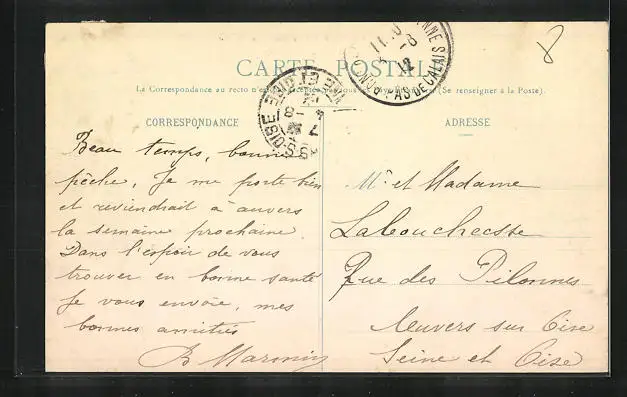 CARTE POSTALE
La Correspondance au recto n'est (Se renseigner à la Poste).
CORRESPONDANCE
ADRESSE
PAS DE CALAIS
8
Beau temps, bonne
pêche, Je me porte bien
et reviendrait à auvers
la semaine prochaine.
Dans l'espoir de vous
trouver en bonne santé
Je vous envoie, mes
bonnes amitiés
Mr et Madame
Rue des
Auvers sur Oise
Seine et Oise